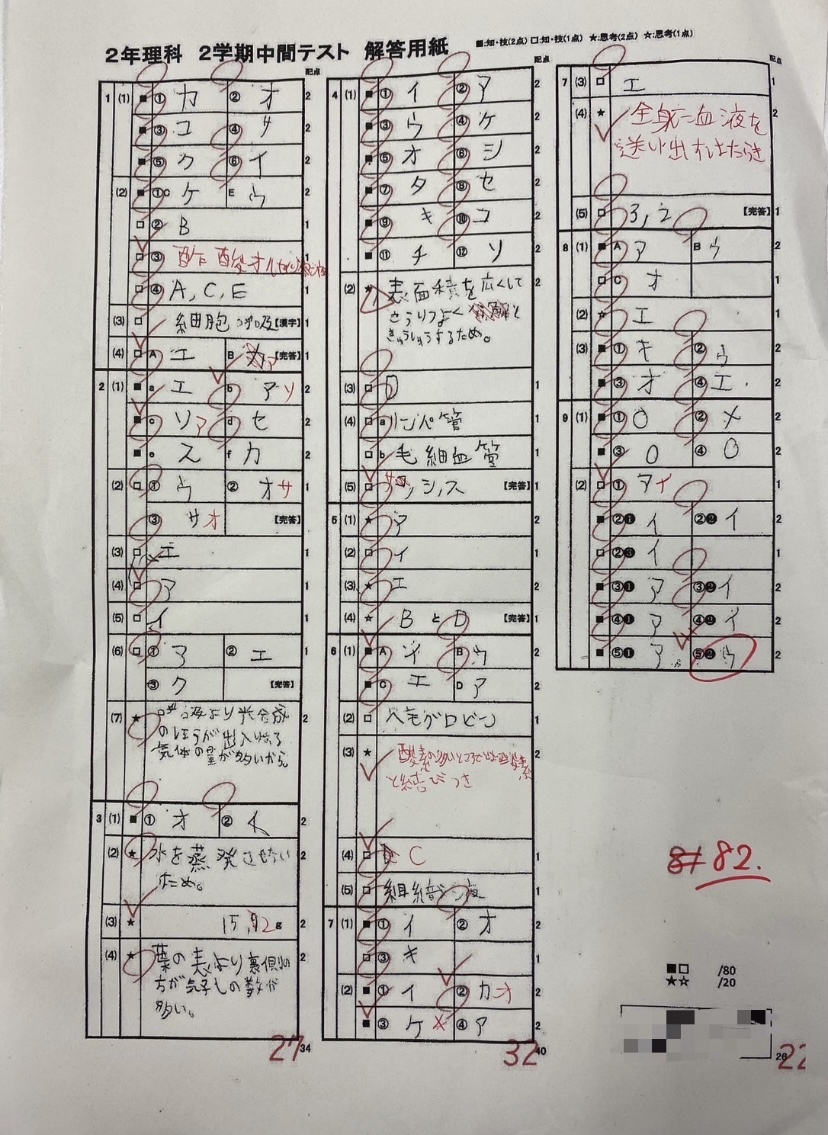 2年理科 2学期中間テスト 解答用紙
■:知・技(2点) □:知・技(1点) ★:思考(2点) ☆:思考(1点)
配点
1 (1) ■ ① カ ② オ 2
■ ③ コ ④ サ 2
■ ⑤ ク ⑥ イ 2
(2) ■ ①C ケ E ウ 2
□ ② B 1
□ ③ 酢酸オルセイン
□ ④ A, C, E 1
(3) □ 細胞呼吸 【漢字】 1
(4) □ A エ B ア 【完答】 1
2 (1) ■ a エ b ア ソ 2
■ c ソ ア d セ 2
■ e ス f カ 2
(2) □ ① ウ ② オ サ 1
③ サ オ 【完答】
(3) □ エ 1
(4) □ ア 1
(5) □ イ 1
(6) □ ① ア ② エ 1
③ ク 【完答】
(7) ★ 呼吸より光合成 2
のほうが出入りする
気体の量が多いから
3 (1) ■ ① オ ② イ 2
(2) ★ 水を蒸発させない 2
ため。
(3) ★ 15.92 g 2
(4) ★ 葉の表より裏側の 2
方が気孔の数が
多い。
27 34
配点
4 (1) ■ ① イ ② ア 2
■ ③ ウ ④ ケ 2
■ ⑤ オ ⑥ シ 2
■ ⑦ タ ⑧ セ 2
■ ⑨ キ ⑩ コ 2
■ ⑪ チ ⑫ ソ 2
(2) ★ 表面積を広くして 2
こうりつよく分解と
きゅうしゅうするため。
(3) □ D 1
(4) □ a リンパ管 1
□ b 毛細血管 1
(5) □ シ, ス 【完答】 1
5 (1) ★ ア 2
(2) □ イ 1
(3) ★ エ 2
(4) ★ BとD 【完答】 2
6 (1) ■ A イ B ウ 2
■ C エ D ア 2
(2) □ ヘモグロビン 1
(3) ★ 酸素の多いところでは酸素 2
と結びつき
(4) □ C 1
(5) □ 組織液 1
7 (1) ■ ① イ ② オ 2
■ ③ キ
(2) ■ ① イ ② カ オ 2
■ ③ ケ ④ ア 2
32 40
配点
7 (3) □ エ 1
(4) ★ 全身に血液を 2
送り出すはたらき
(5) □ 3, 2 【完答】 1
8 (1) ■ A ア B ウ 2
□ C オ 1
(2) ★ エ 2
(3) ■ ① キ ② ウ 2
■ ③ オ ④ エ 2
9 (1) ■ ① ○ ② × 2
■ ③ ○ ④ ○ 2
(2) □ ① ア イ 1
■ ②❶ イ ②❷ イ 2
□ ②❸ イ 1
■ ③❶ ア ③❷ イ 2
■ ④❶ ア ④❷ イ 2
■ ⑤❶ ア ⑤❷ ウ 2
82.
■□ /80
★☆ /20
26 22